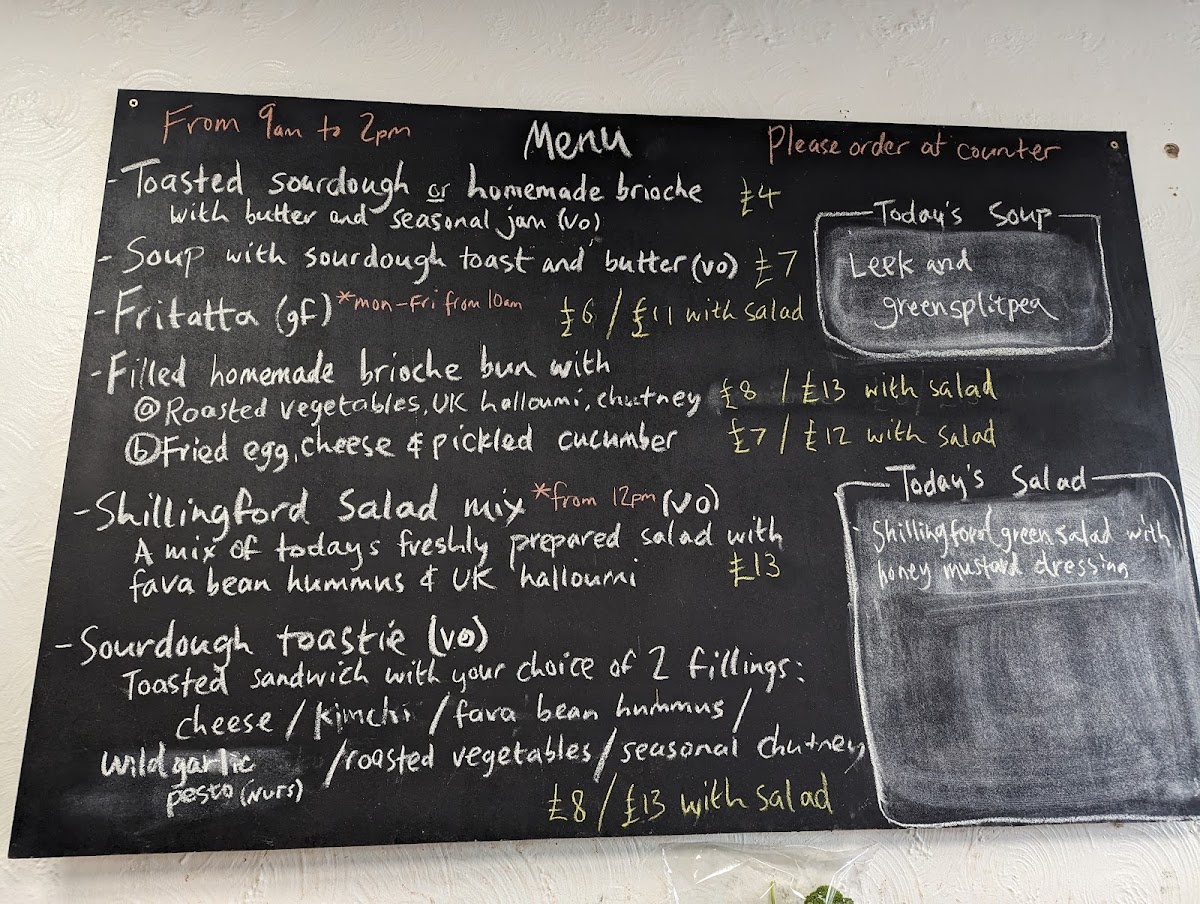 From 9am to 2pm
Menu
Please order at counter
- Toasted sourdough or homemade brioche £4
with butter and seasonal jam (vo)
- Soup with sourdough toast and butter (vo) £7
- Fritatta (gf) *mon-Fri from 10am £6 / £11 with salad
- Filled homemade brioche bun with
ⓐ Roasted vegetables, UK halloumi, chutney £8 / £13 with salad
ⓑ Fried egg, cheese & pickled cucumber £7 / £12 with salad
- Shillingford Salad mix *from 12pm (vo)
A mix of todays freshly prepared salad with
fava bean hummus & UK halloumi £13
- Sourdough toastie (vo)
Toasted sandwich with your choice of 2 fillings:
cheese / kimchi / fava bean hummus /
wild garlic / roasted vegetables / seasonal chutney
pesto (nuts)
£8 / £13 with salad
Today's Soup
Leek and
green split pea
Today's Salad
- Shillingford green salad with
honey mustard dressing